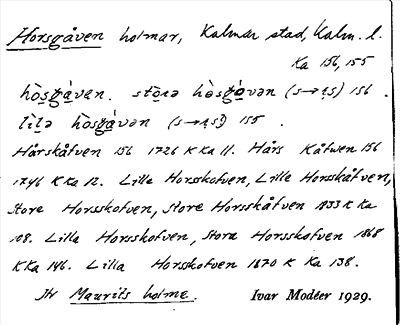 Horsgåven holmar, Kalmar stad, Kalm. l.
Ka 156, 155
hòsgávan. stòrə hòsgávən (s→ṣs) 156.
lìlə hòsgávən (s→ṣs?) 155.
Hårskåfven 156 1726 K Ka 11. Hårs Kåfwen 156
1746 K Ka 12. Lilla Horsskofven, Lille Horsskåfven,
Store Horsskofven, Store Horsskåfven 1833 K Ka
108. Lilla Horsskofven, Stora Horsskofven 1868
K Ka 146. Lilla Horsskofven 1870 K Ka 138.
Jfr Maurits holme. Ivar Modéer 1929.